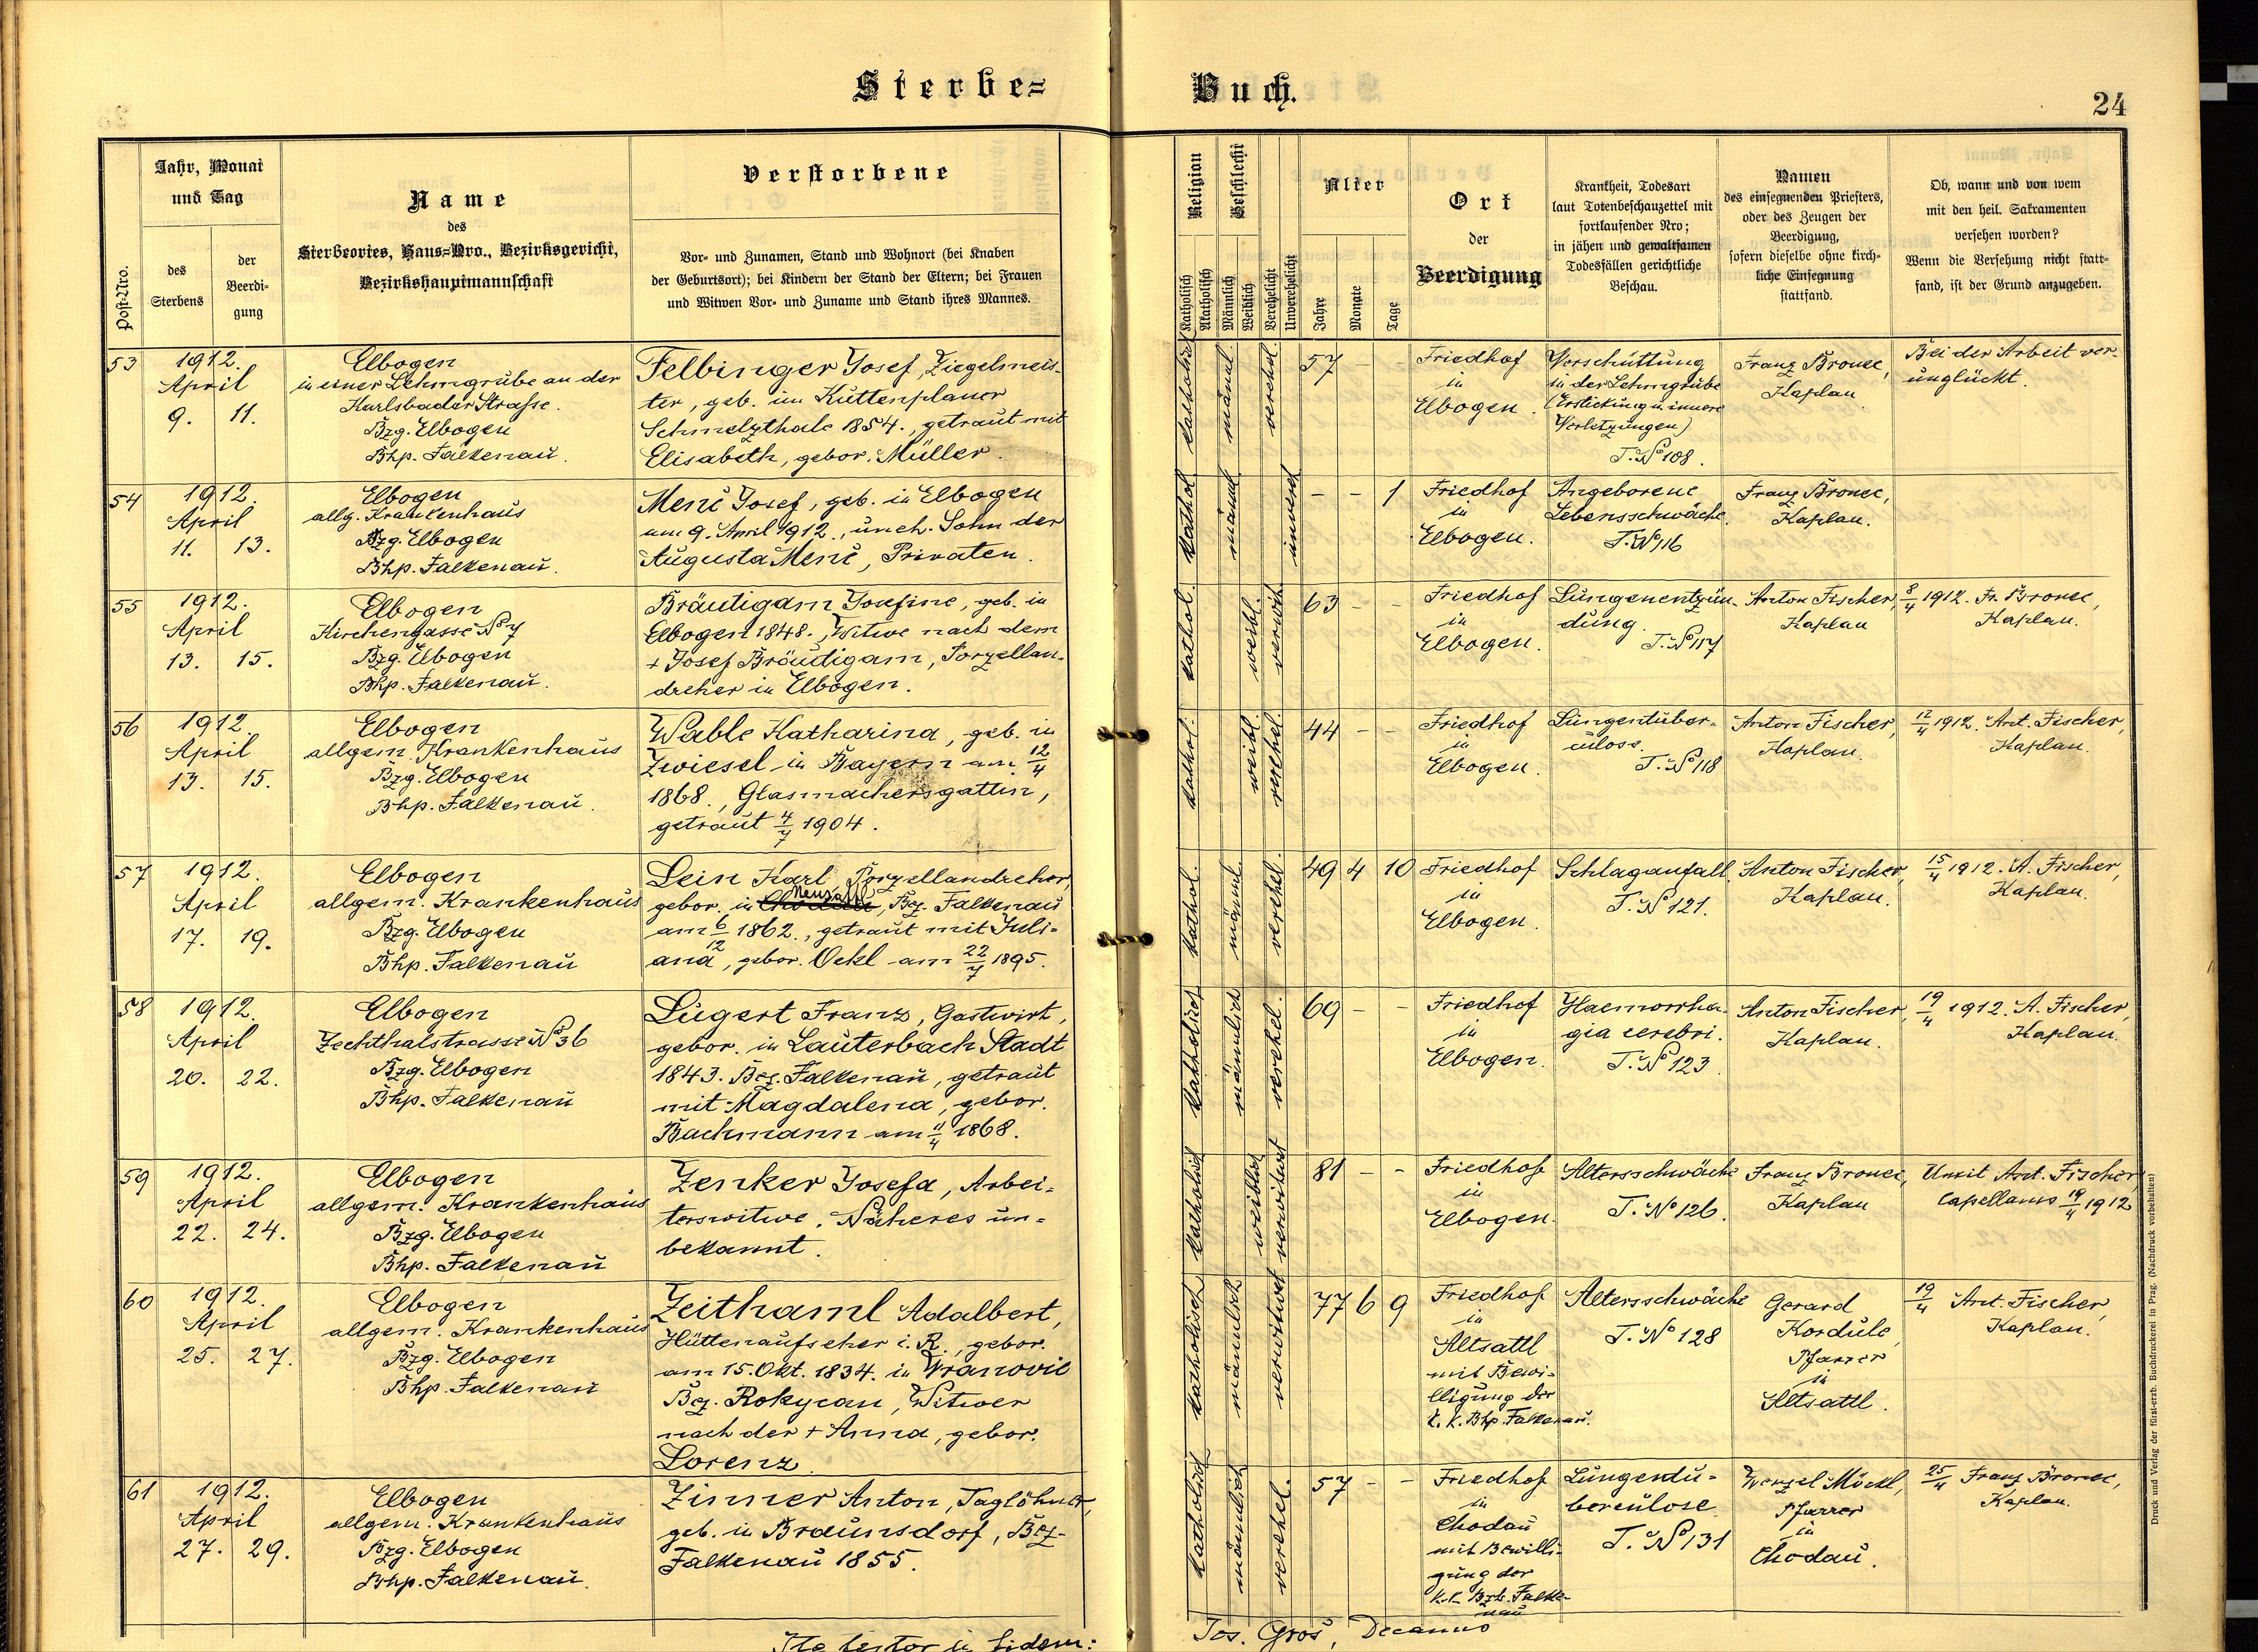 Sterbe= Buch.
24
Post-Nro.
Jahr, Monat
und Tag
des
Sterbens
der
Beerdi-
gung
Name
des
Sterbeortes, Haus-Nro., Bezirksgericht,
Bezirkshauptmannschaft
Verstorbene
Vor- und Zunamen, Stand und Wohnort (bei Knaben
der Geburtsort); bei Kindern der Stand der Eltern; bei Frauen
und Witwen Vor- und Zuname und Stand ihres Mannes.
Religion
Katholisch
Akatholisch
Geschlecht
Männlich
Weiblich
Verehelicht
Unverehelicht
Alter
Jahre
Monate
Tage
Ort
der
Beerdigung
Krankheit, Todesart
laut Totenbeschauzettel mit
fortlaufender Nro;
in jähen und gewaltsamen
Todesfällen gerichtliche
Beschau.
Namen
des einsegnenden Priesters,
oder des Zeugen der
Beerdigung,
sofern dieselbe ohne kirch-
liche Einsegnung
stattfand.
Ob, wann und von wem
mit den heil. Sakramenten
versehen worden?
Wenn die Versehung nicht statt-
fand, ist der Grund anzugeben.
53
1912.
April
9. 11.
Elbogen
in einer Lehmgrube an der
Karlsbader Strasse.
Bzg. Elbogen
Bhp. Falkenau.
Felbinger Josef, Ziegelmeis-
ter, geb. im Kuttenplaner
Schmelzthale 1854., getraut mit
Elisabeth, gebor. Müller.
katholisch
männl.
verehel.
57 - -
Friedhof
in
Elbogen.
Verschüttung
in der Lehmgrube
(Erstickung u. innere
Verletzungen)
T. No 108.
Franz Bronec,
Kaplan
Bei der Arbeit ver-
unglückt.
54
1912.
April
11. 13.
Elbogen
allg. Krankenhaus
Bzg. Elbogen
Bhp. Falkenau.
Menč Josef, geb. in Elbogen
am 9. April 1912., uneh. Sohn der
Augusta Menč, Privaten.
kathol
männl
unvereh
- - 1
Friedhof
in
Elbogen.
Angeborene
Lebensschwäche.
T. No 116
Franz Bronec,
Kaplan.
55
1912.
April
13. 15.
Elbogen
Kirchengasse No 7
Bzg. Elbogen
Bhp. Falkenau.
Bräutigam Josefine, geb. in
Elbogen 1848., Witwe nach dem
+ Josef Bräutigam, Porzellan-
dreher in Elbogen.
kathol.
weibl.
verwit.
63 - -
Friedhof
in
Elbogen.
Lungenentzün-
dung.
T. No 117
Anton Fischer,
Kaplan
8/4 1912. Fr. Bronec,
Kaplan.
56
1912.
April
13. 15.
Elbogen
allgem. Krankenhaus
Bzg. Elbogen
Bhp. Falkenau.
Wable Katharina, geb. in
Zwiesel in Bayern am 12/4
1868., Glasmachersgattin,
getraut 4/7 1904.
kathol.
weibl.
verehel.
44 - -
Friedhof
in
Elbogen.
Lungentuber-
culose.
T. No 118
Anton Fischer,
Kaplan.
12/4 1912. Ant. Fischer,
Kaplan.
57
1912.
April
17. 19.
Elbogen
allgem. Krankenhaus
Bzg. Elbogen
Bhp. Falkenau
Lein Karl Porzellandreher,
Neusattl
gebor. in Chodau, Bez. Falkenau
am 6/12 1862., getraut mit Juli-
ana, gebor. Öckl am 22/7 1895.
kathol.
männl.
verehel.
49 4 10
Friedhof
in
Elbogen.
Schlaganfall.
T. No 121.
Anton Fischer,
Kaplan.
15/4 1912. A. Fischer,
Kaplan.
58
1912.
April
20. 22.
Elbogen
Zechthalstrasse No 36
Bzg. Elbogen
Bhp. Falkenau
Lugert Franz, Gastwirt,
gebor. in Lauterbach Stadt
1843. Bez. Falkenau, getraut
mit Magdalena, gebor.
Bachmann am 11/4 1868.
katholisch
männlich
verehel.
69 - -
Friedhof
in
Elbogen.
Haemorrha-
gia cerebri.
T. No 123
Anton Fischer,
Kaplan.
19/4 1912. A. Fischer,
Kaplan.
59
1912.
April
22. 24.
Elbogen
allgem. Krankenhaus
Bzg. Elbogen
Bhp. Falkenau
Zenker Josefa, Arbei-
terswitwe. Näheres un-
bekannt.
katholisch
weiblich
verwitwet
81 - -
Friedhof
in
Elbogen.
Altersschwäche
T. No 126.
Franz Bronec,
Kaplan
Unxit Ant. Fischer
Capellanus 19/4 1912
60
1912.
April
25. 27.
Elbogen
allgem. Krankenhaus
Bzg. Elbogen
Bhp. Falkenau
Zeithaml Adalbert,
Hüttenaufseher i. R., gebor.
am 15. Okt. 1834. in Wranovic
Bez. Rokycan, Witwer
nach der + Anna, gebor.
Lorenz.
katholisch
männlich
verwitwet
77 6 9
Friedhof
in
Altsattl
mit Bewi-
lligung der
k. k. Bhp. Falkenau.
Altersschwäche
T. No 128
Gerard
Kordule,
Pfarrer
in
Altsattl.
19/4 Ant. Fischer,
Kaplan.
61
1912.
April
27. 29.
Elbogen
allgem. Krankenhaus
Bzg. Elbogen
Bhp. Falkenau.
Zinner Anton, Taglöhner,
geb. in Braunsdorf, Bez.
Falkenau 1855.
katholisch
männlich
verehel.
57 - -
Friedhof
in
Chodau
mit Bewilli-
gung der
k.k. Bzh. Falke-
nau
Lungentu-
berculose
T. No 131
Wenzel Möckl,
Pfarrer
in
Chodau.
25/4 Franz Bronec,
Kaplan.
Ita testor in fidem:
Jos. Groš, Decanus
Druck und Verlag der fürst-erzb. Buchdruckerei in Prag. (Nachdruck vorbehalten)